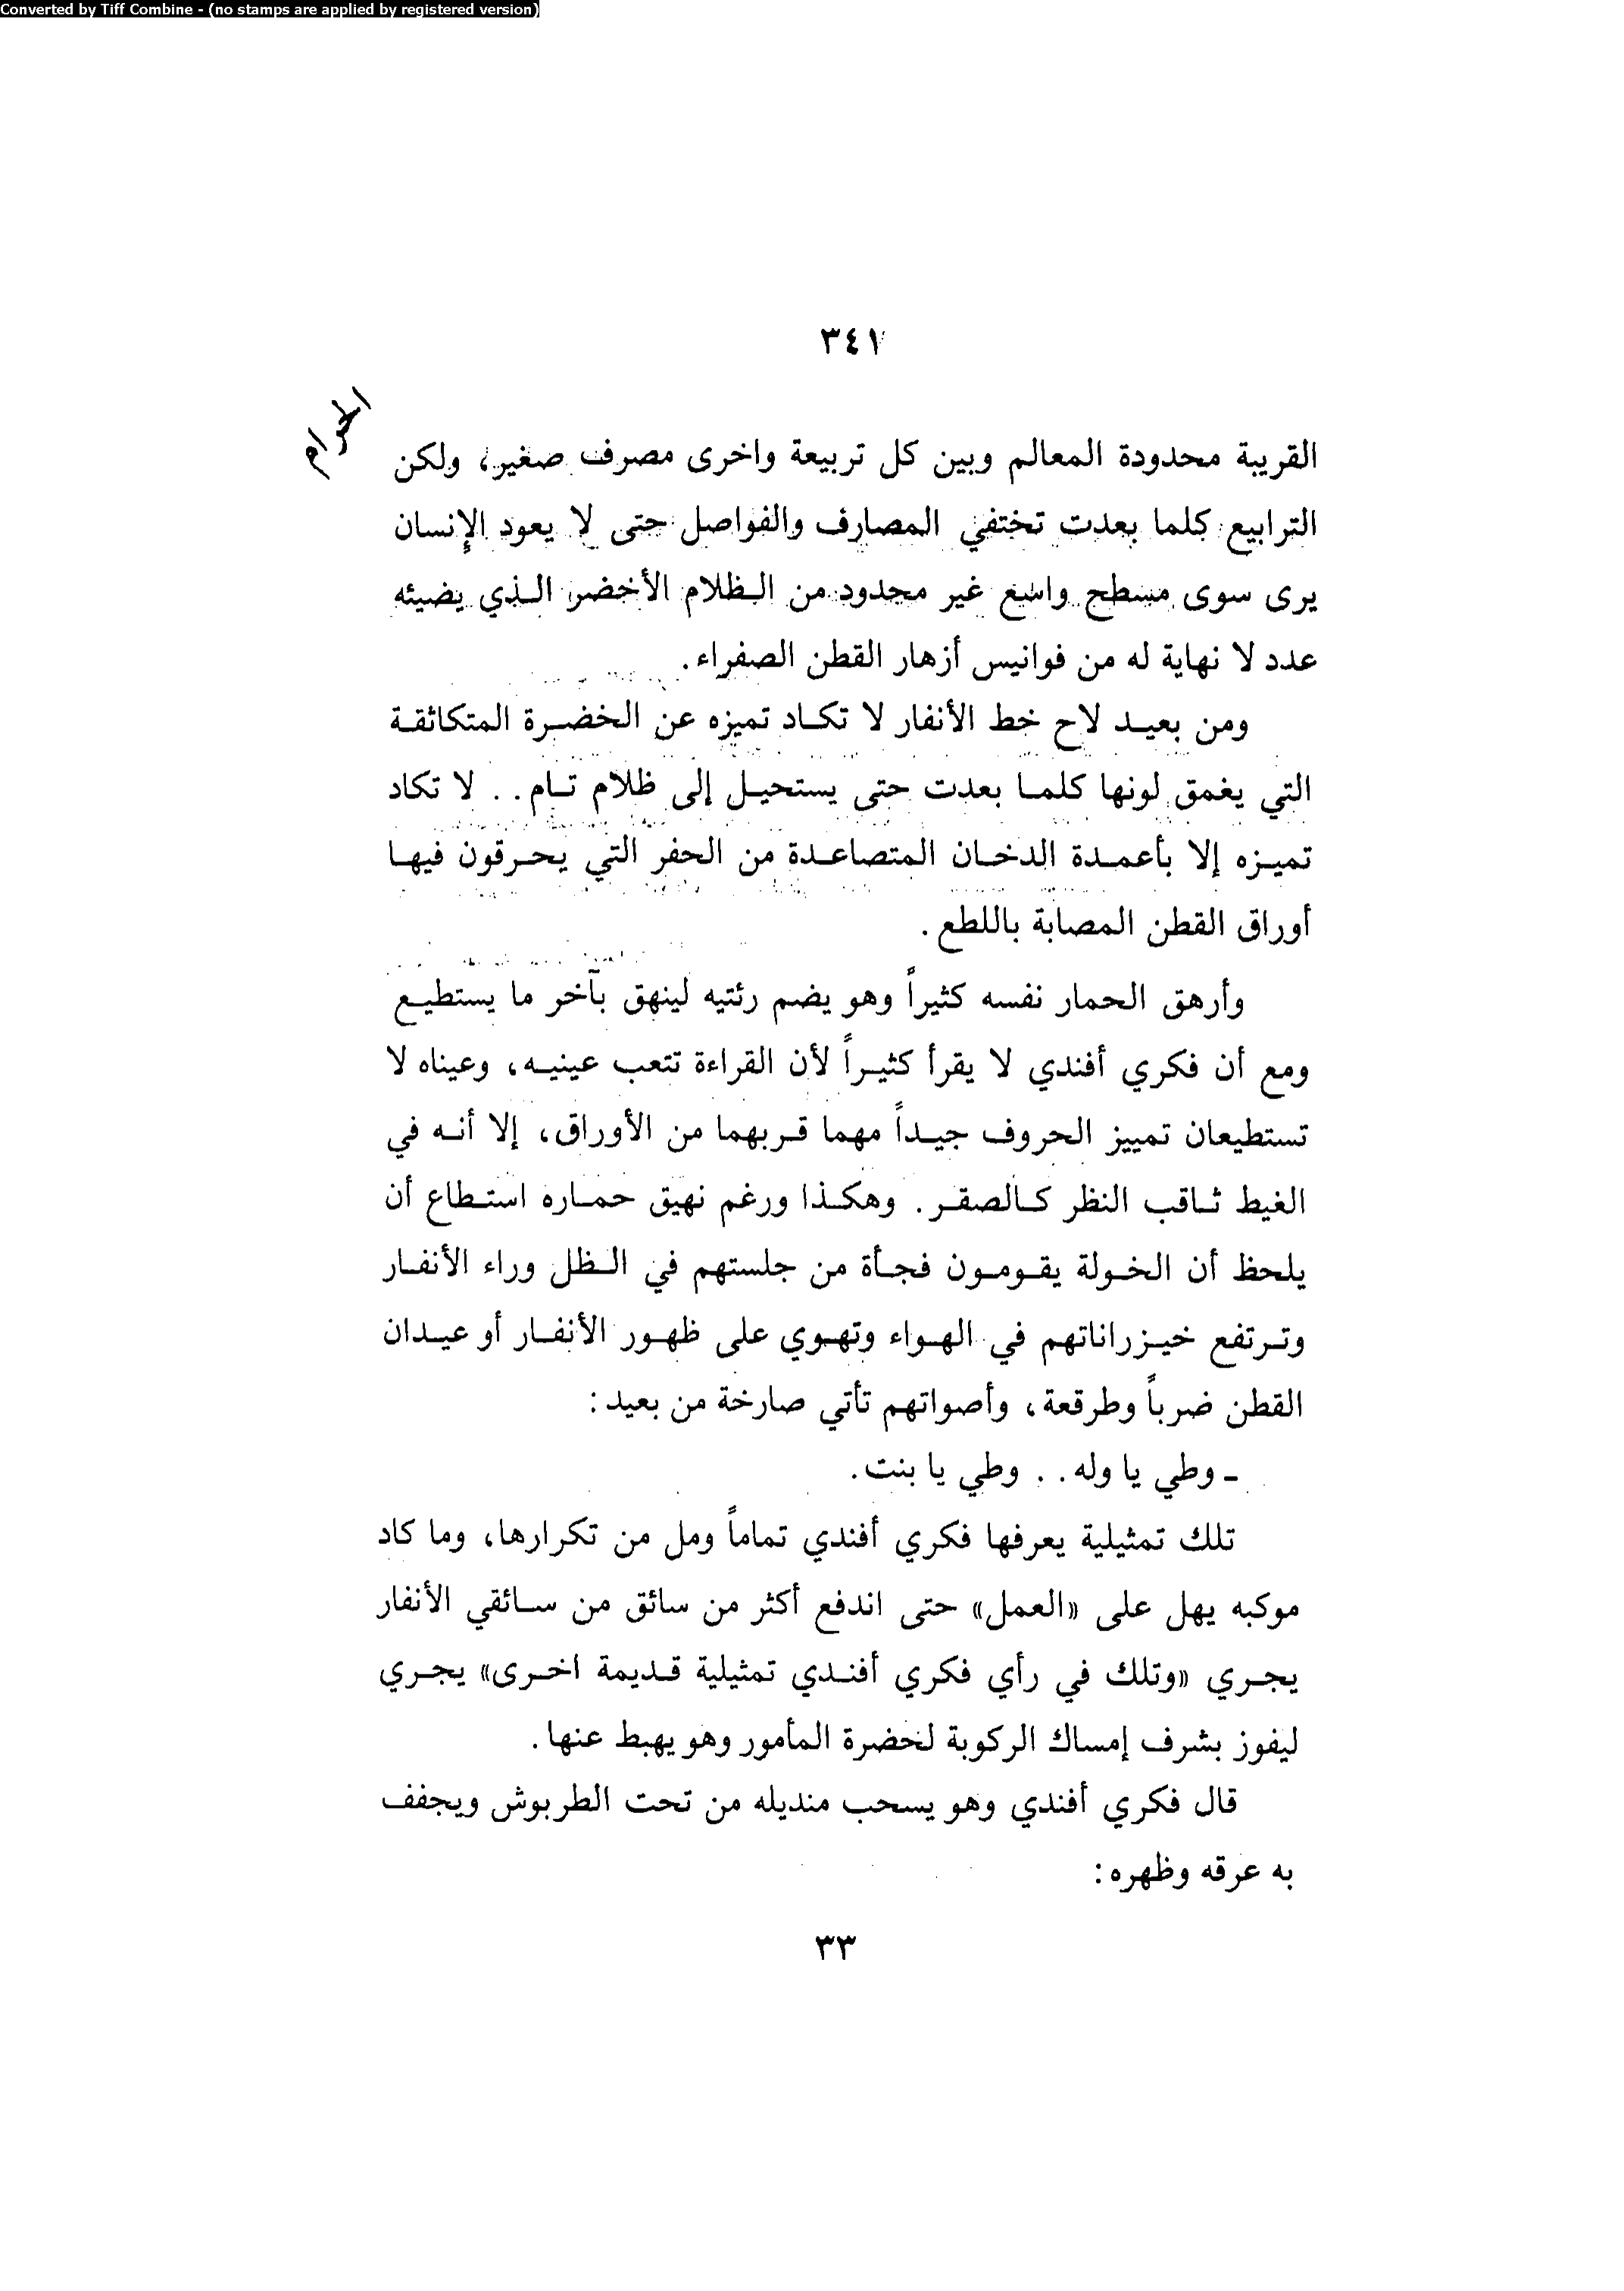 Converted by Tiff Combine - (no stamps are applied by registered version)
٣٤١
الحرام
القريبة محدودة المعالم وبين كل تربيعة واخرى مصرف صغير، ولكن
الترابيع كلما بعدت تختفي المصارف والفواصل حتى لا يعود الإنسان
يرى سوى مسطح واسع غير محدود من الظلام الأخضر الذي يضيئه
عدد لا نهاية له من فوانيس أزهار القطن الصفراء.
ومن بعيد لاح خط الأنفار لا تكاد تميزه عن الخضرة المتكاثفة
التي يغمق لونها كلما بعدت حتى يستحيل إلى ظلام تام.. لا تكاد
تميزه إلا بأعمدة الدخان المتصاعدة من الحفر التي يحرقون فيها
أوراق القطن المصابة باللطع.
وأرهق الحمار نفسه كثيراً وهو يضم رئتيه لينهق بآخر ما يستطيع
ومع أن فكري أفندي لا يقرأ كثيراً لأن القراءة تتعب عينيه، وعيناه لا
تستطيعان تمييز الحروف جيداً مهما قربهما من الأوراق، إلا أنه في
الغيط ثاقب النظر كالصقر. وهكذا ورغم نهيق حماره استطاع أن
يلحظ أن الخولة يقومون فجأة من جلستهم في الظل وراء الأنفار
وترتفع خيزراناتهم في الهواء وتهوي على ظهور الأنفار أو عيدان
القطن ضرباً وطرقعة، وأصواتهم تأتي صارخة من بعيد:
ـ وطي يا وله.. وطي يا بنت.
تلك تمثيلية يعرفها فكري أفندي تماماً ومل من تكرارها، وما كاد
موكبه يهل على «العمل» حتى اندفع أكثر من سائق من سائقي الأنفار
يجري «وتلك في رأي فكري أفندي تمثيلية قديمة اخرى» يجري
ليفوز بشرف إمساك الركوبة لحضرة المأمور وهو يهبط عنها.
قال فكري أفندي وهو يسحب منديله من تحت الطربوش ويجفف
به عرقه وظهره:
٣٣